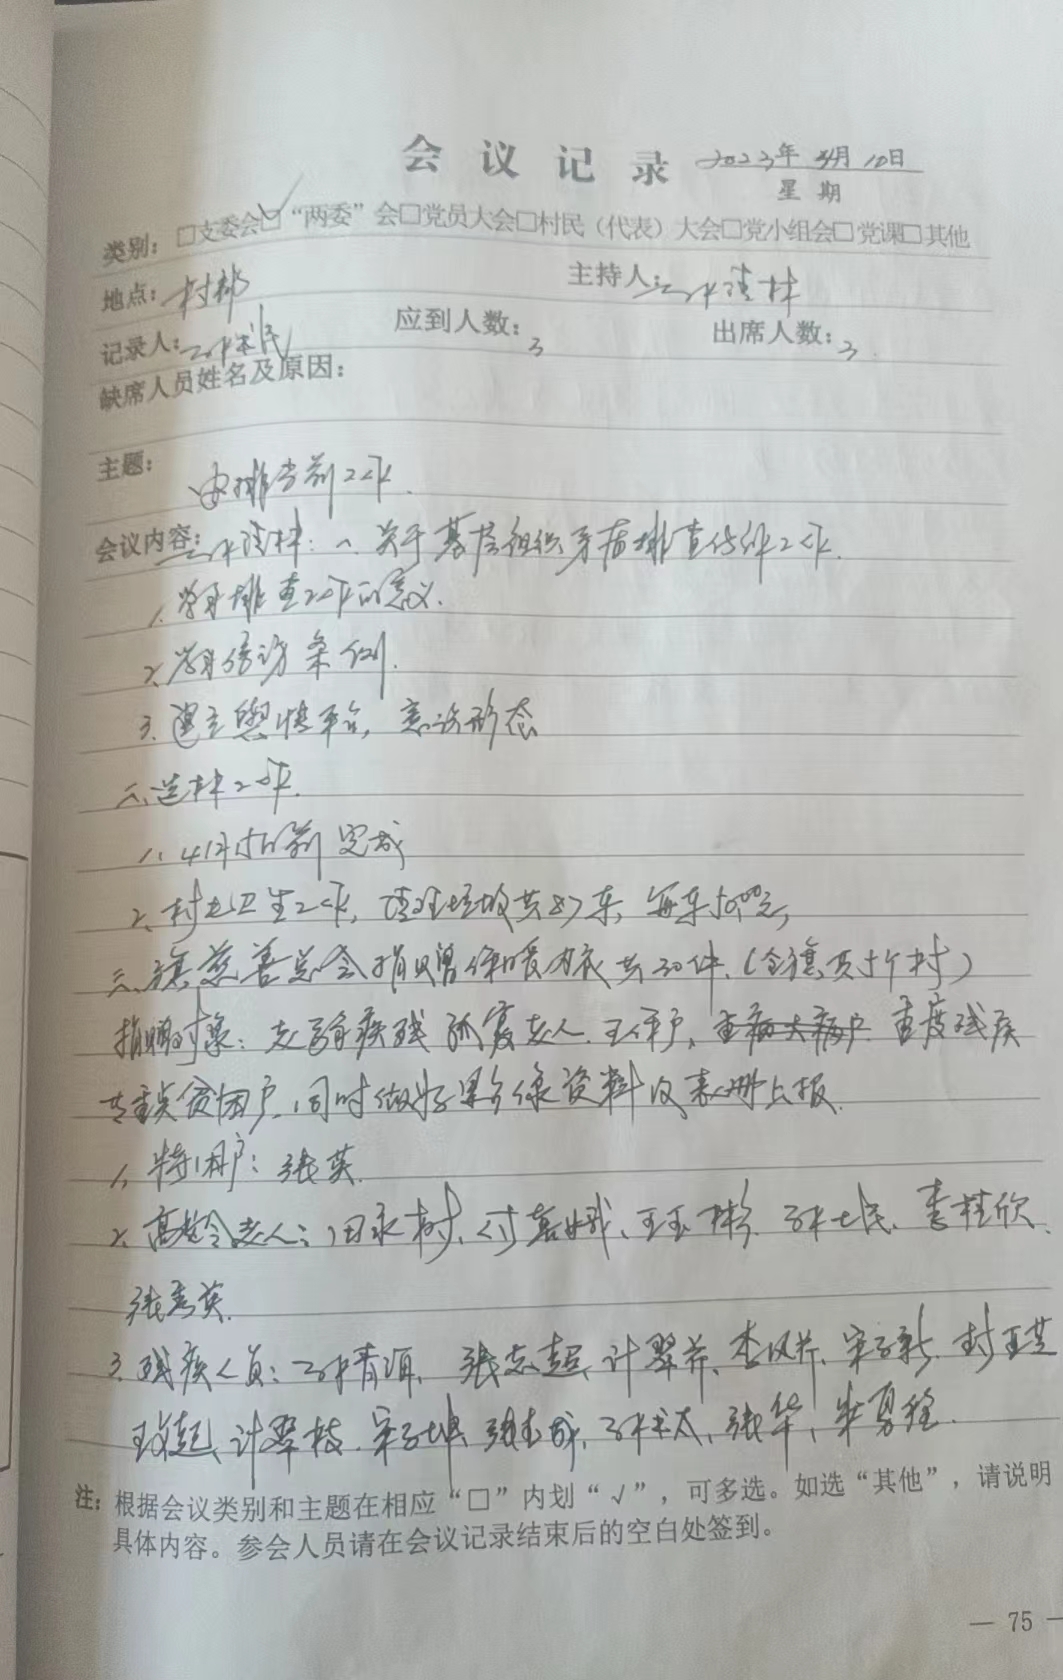 会议记录 2023年 3月10日
星期
类别：□支委会☑“两委”会□党员大会□村民（代表）大会□党小组会□党课□其他
地点：村部 主持人：清林
记录人：民 应到人数：3 出席人数：3
缺席人员姓名及原因：
主题：安排当前工作.
会议内容：清林：一、关于基层组织矛盾排查工作.
1. 排查工作的意义.
2. 信访条例.
3. 建立舆情平台，意识形态
二、造林工作.
1. 4月15日前完成
2. 村屯卫生工作，清理垃圾共87车，每车50.00元，
三、旗慈善总会捐赠保暖内衣共30件.（全镇五十个村）
捐赠对象：老弱病残 孤寡老人. 五保户，重度残疾
重点贫困户，同时做好影像资料及表册上报.
1、特困户：张英.
2、高龄老人：田永树、付 、王玉彬. 孙七民、李桂欣、
张秀英.
3. 残疾人员：孙清 、张志超、计翠芹、李凤芹、宋 新、封
计翠枝、宋 坤、张 成、孙 太、张华、
注：根据会议类别和主题在相应“□”内划“√”，可多选。如选“其他”，请说明
具体内容。参会人员请在会议记录结束后的空白处签到。
— 75 —